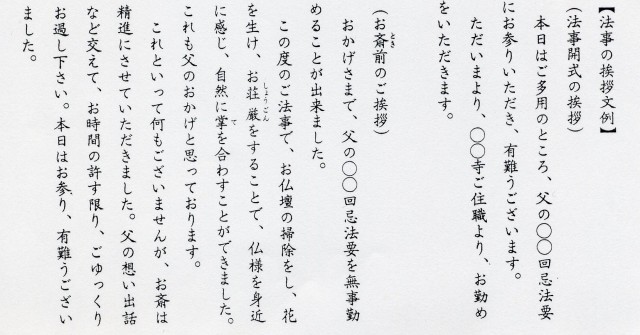 【法事の挨拶文例】
(法事開式の挨拶)
本日はご多用のところ、父の〇〇回忌法要
にお参りいただき、有難うございます。
ただいまより、〇〇寺ご住職より、お勤め
をいただきます。
(お斎前のご挨拶)
とき
おかげさまで、父の〇〇回忌法要を無事勤
めることが出来ました。
この度のご法事で、お仏壇の掃除をし、花
を生け、お荘厳をすることで、仏様を身近
しょうごん
に感じ、自然に掌を合わすことができました。
て
これも父のおかげと思っております。
これといって何もございませんが、お斎は
精進にさせていただきました。父の想い出話
など交えて、お時間の許す限り、ごゆっくり
お過し下さい。本日はお参り、有難うござい
ました。